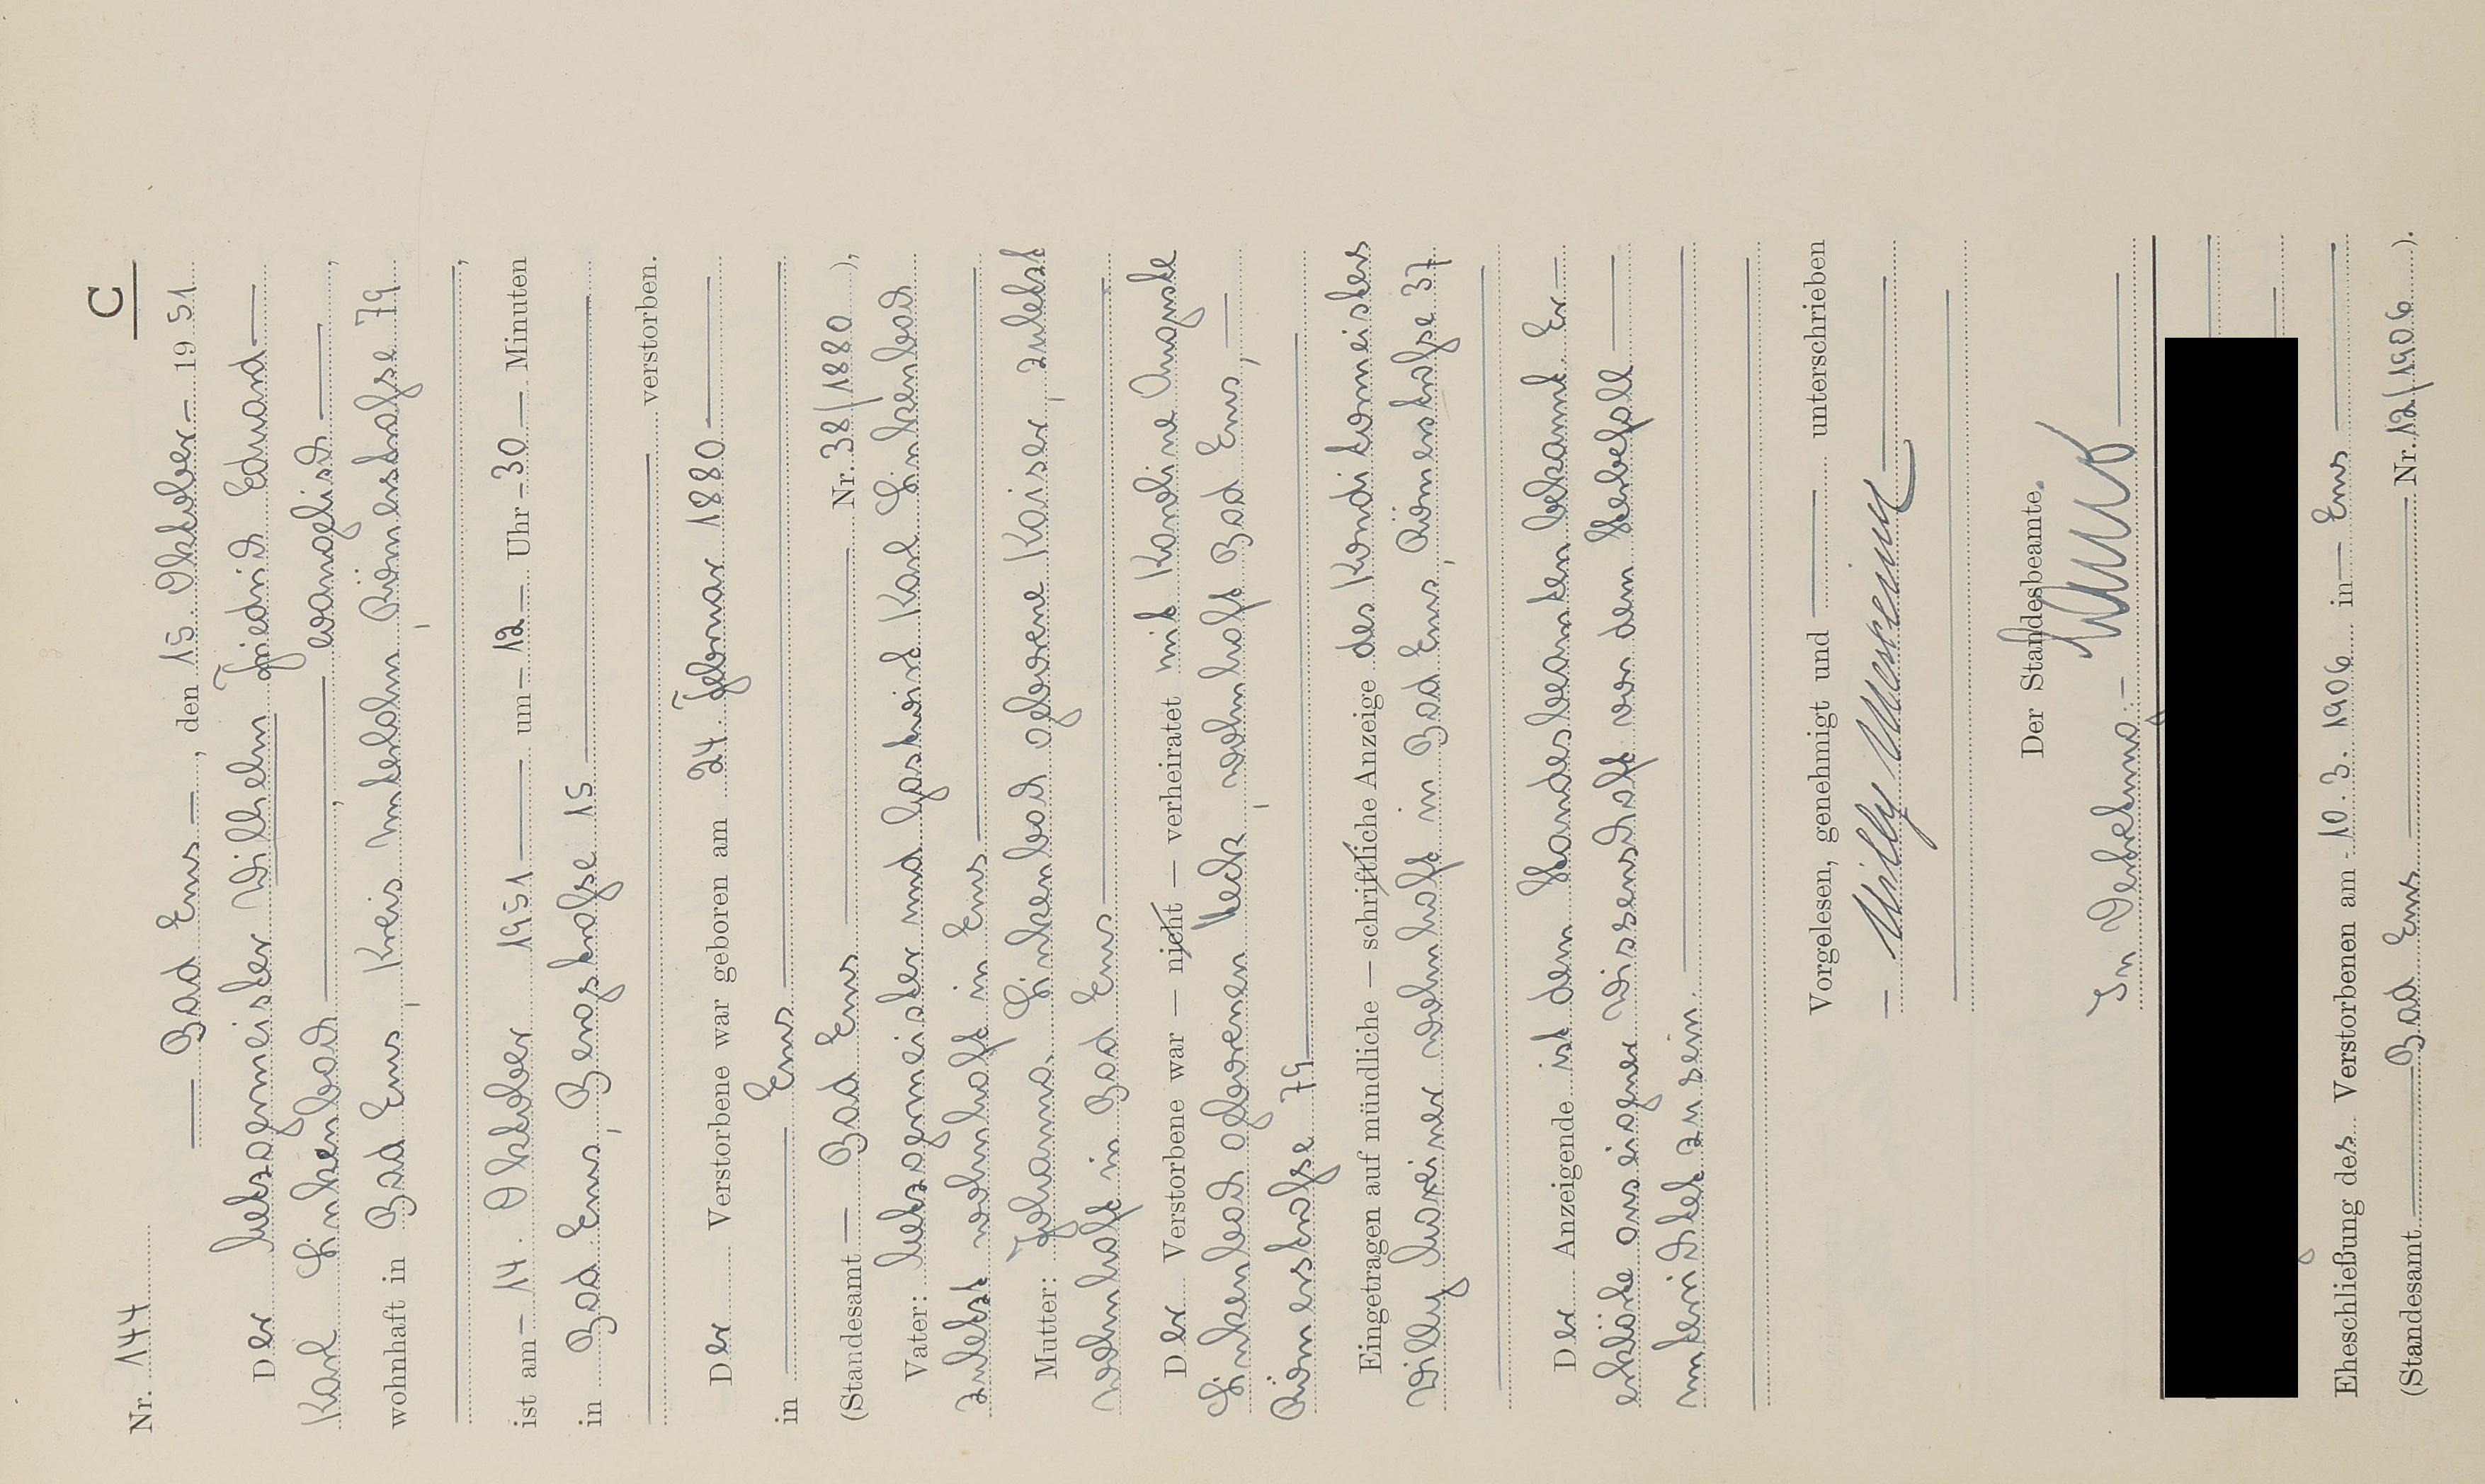 C
Nr. 144
— Bad Ems —, den 15. Oktober — 19 51
Der Metzgermeister Wilhelm Friedrich Eduard —
Karl Linkenbach —, — evangelisch —,
wohnhaft in Bad Ems, Kreis Unterlahn, Römerstraße 79
—,
ist am — 14. Oktober 1951 — um — 12 — Uhr — 30 — Minuten
in Bad Ems, Bergstraße 15 —
— verstorben.
Der Verstorbene war geboren am 24. Februar 1880 —
in — Ems —
(Standesamt — Bad Ems — Nr. 38/1880 ),
Vater: Metzgermeister und Gastwirt Karl Linkenbach
zuletzt wohnhaft in Ems —
Mutter: Johanna Linkenbach geborene Kaiser, zuletzt
wohnhaft in Bad Ems —
Der Verstorbene war — nicht — verheiratet mit Karoline Auguste
Linkenbach geborenen Heck, wohnhaft Bad Ems, —
Römerstraße 79 —
Eingetragen auf mündliche — schriftliche Anzeige des Konditormeisters
Willy Maxeiner wohnhaft in Bad Ems, Römerstraße 37
Der Anzeigende ist dem Standesbeamten bekannt. Er —
erklärte aus eigener Wissenschaft von dem Sterbefall —
unterrichtet zu sein. —
Vorgelesen, genehmigt und — unterschrieben
— Willy Maxeiner —
Der Standesbeamte.
In Vertretung: —
Eheschließung des Verstorbenen am 10. 3. 1906 in — Ems —
(Standesamt — Bad Ems — Nr. 12/1906 ).